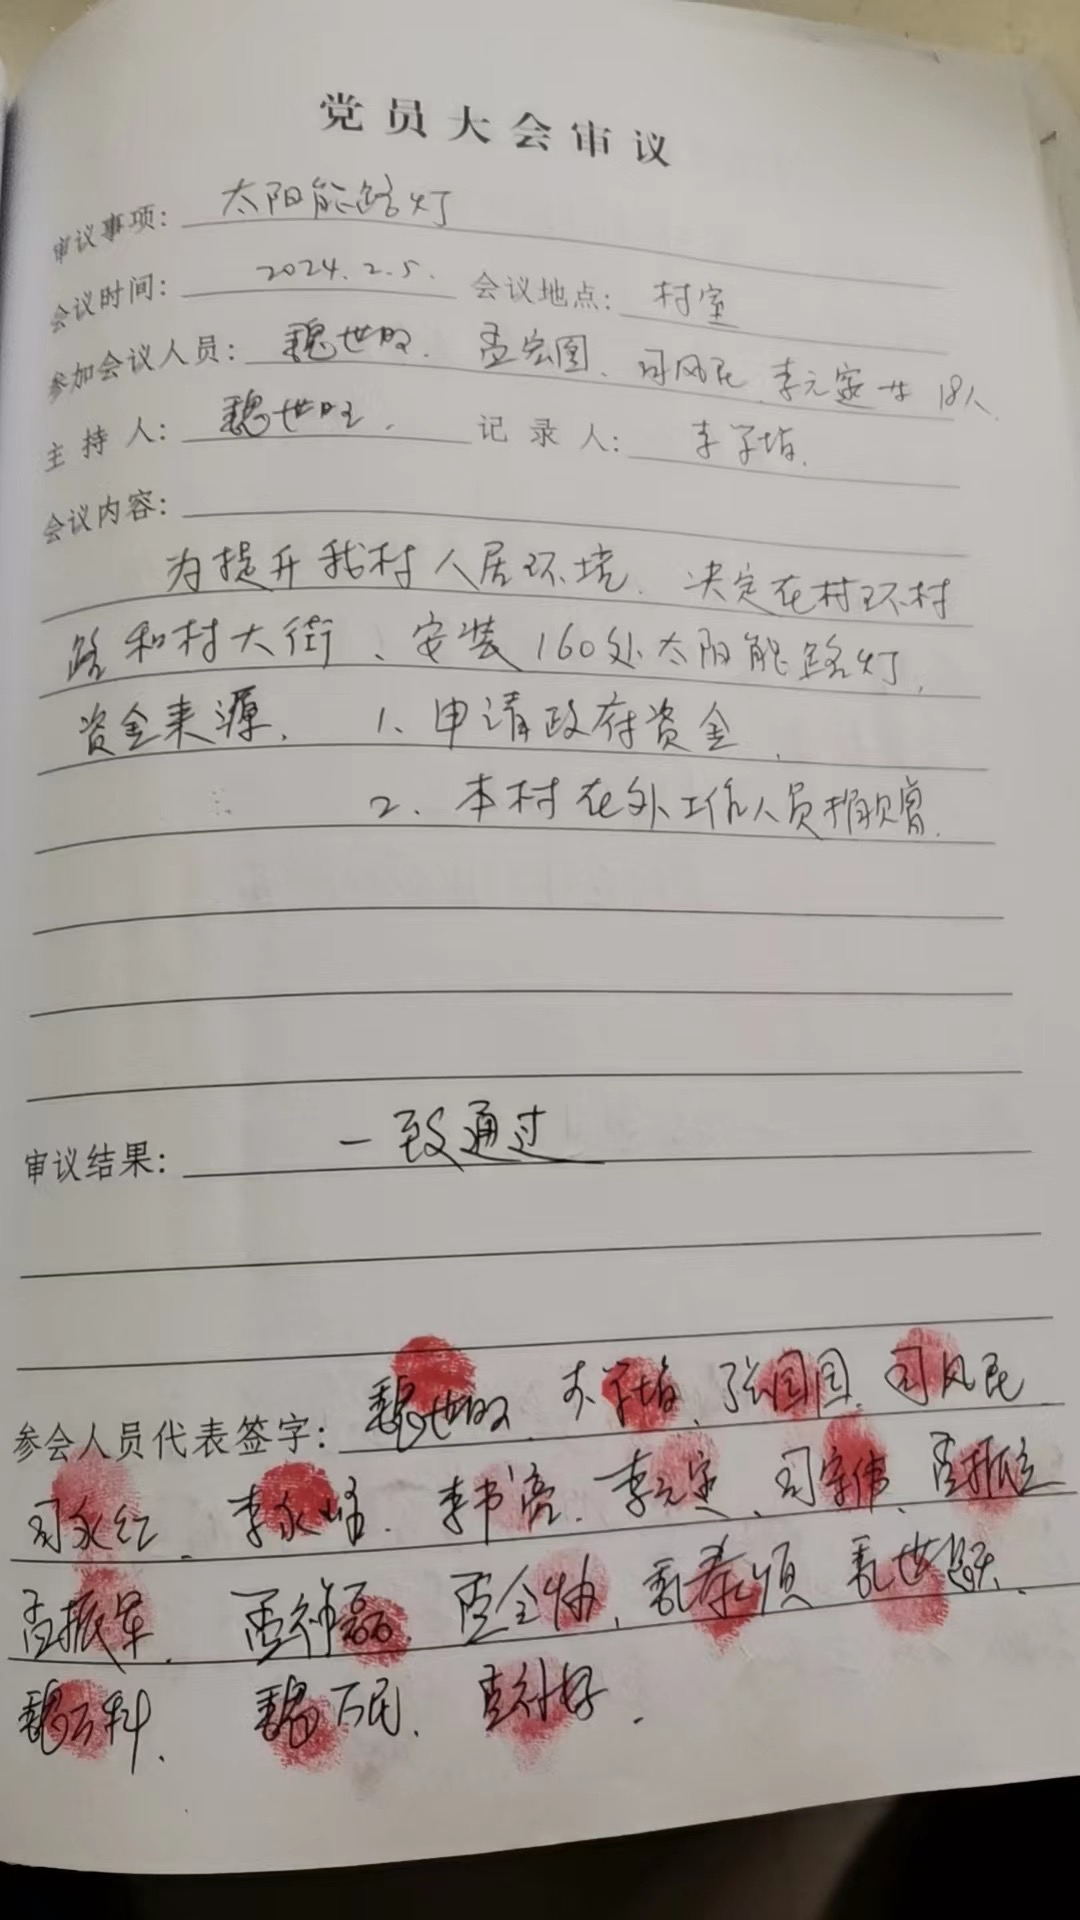 党员大会审议
审议事项: 太阳能路灯
会议时间: 2024.2.5. 会议地点: 村室
参加会议人员: 魏世旺、孟宏图、司风民、李元定 等 18人
主持人: 魏世旺. 记录人: 李学培.
会议内容:
为提升我村人居环境、决定在村环村
路和村大街、安装160处太阳能路灯,
资金来源、 1、申请政府资金.
2、本村在外工作人员捐赠.
审议结果: 一致通过
参会人员代表签字: 魏世旺、李学培、司风民
司永红、李永峰、李书亮、李元定、司宗伟、孟振立
孟振军、孟祥磊、世跃、
魏万科、魏万民、